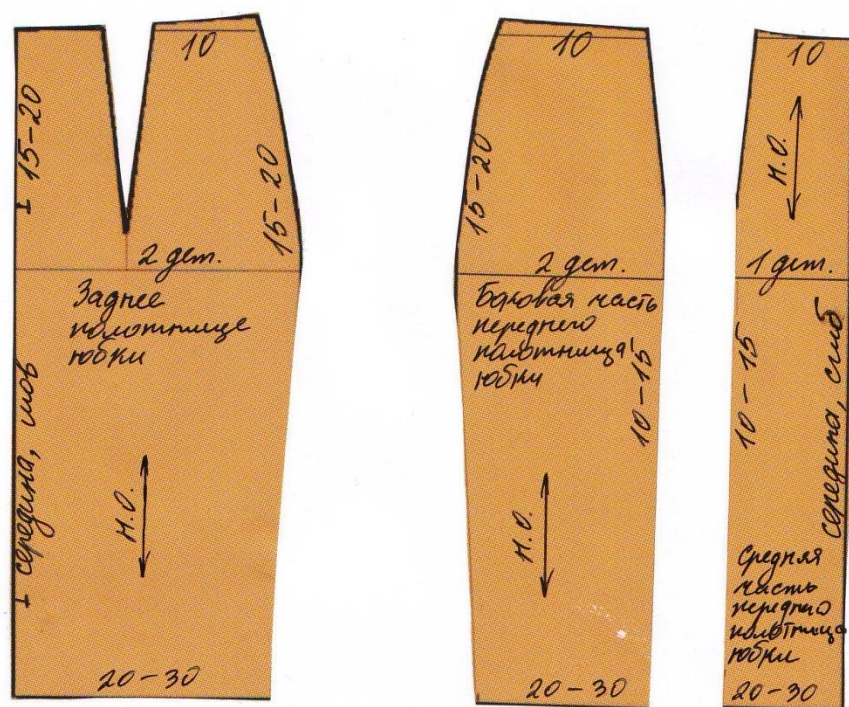 10
I 15-20
15-20
2 дет.
Заднее
полотнище
юбки
I середина, шов
Н.О.
20-30
10
15-20
2 дет.
Боковая часть
переднего
полотнища
юбки
10-15
Н.О.
20-30
10
Н.О.
1 дет.
10-15
середина, сгиб
Средняя
часть
переднего
полотнища
юбки
20-30